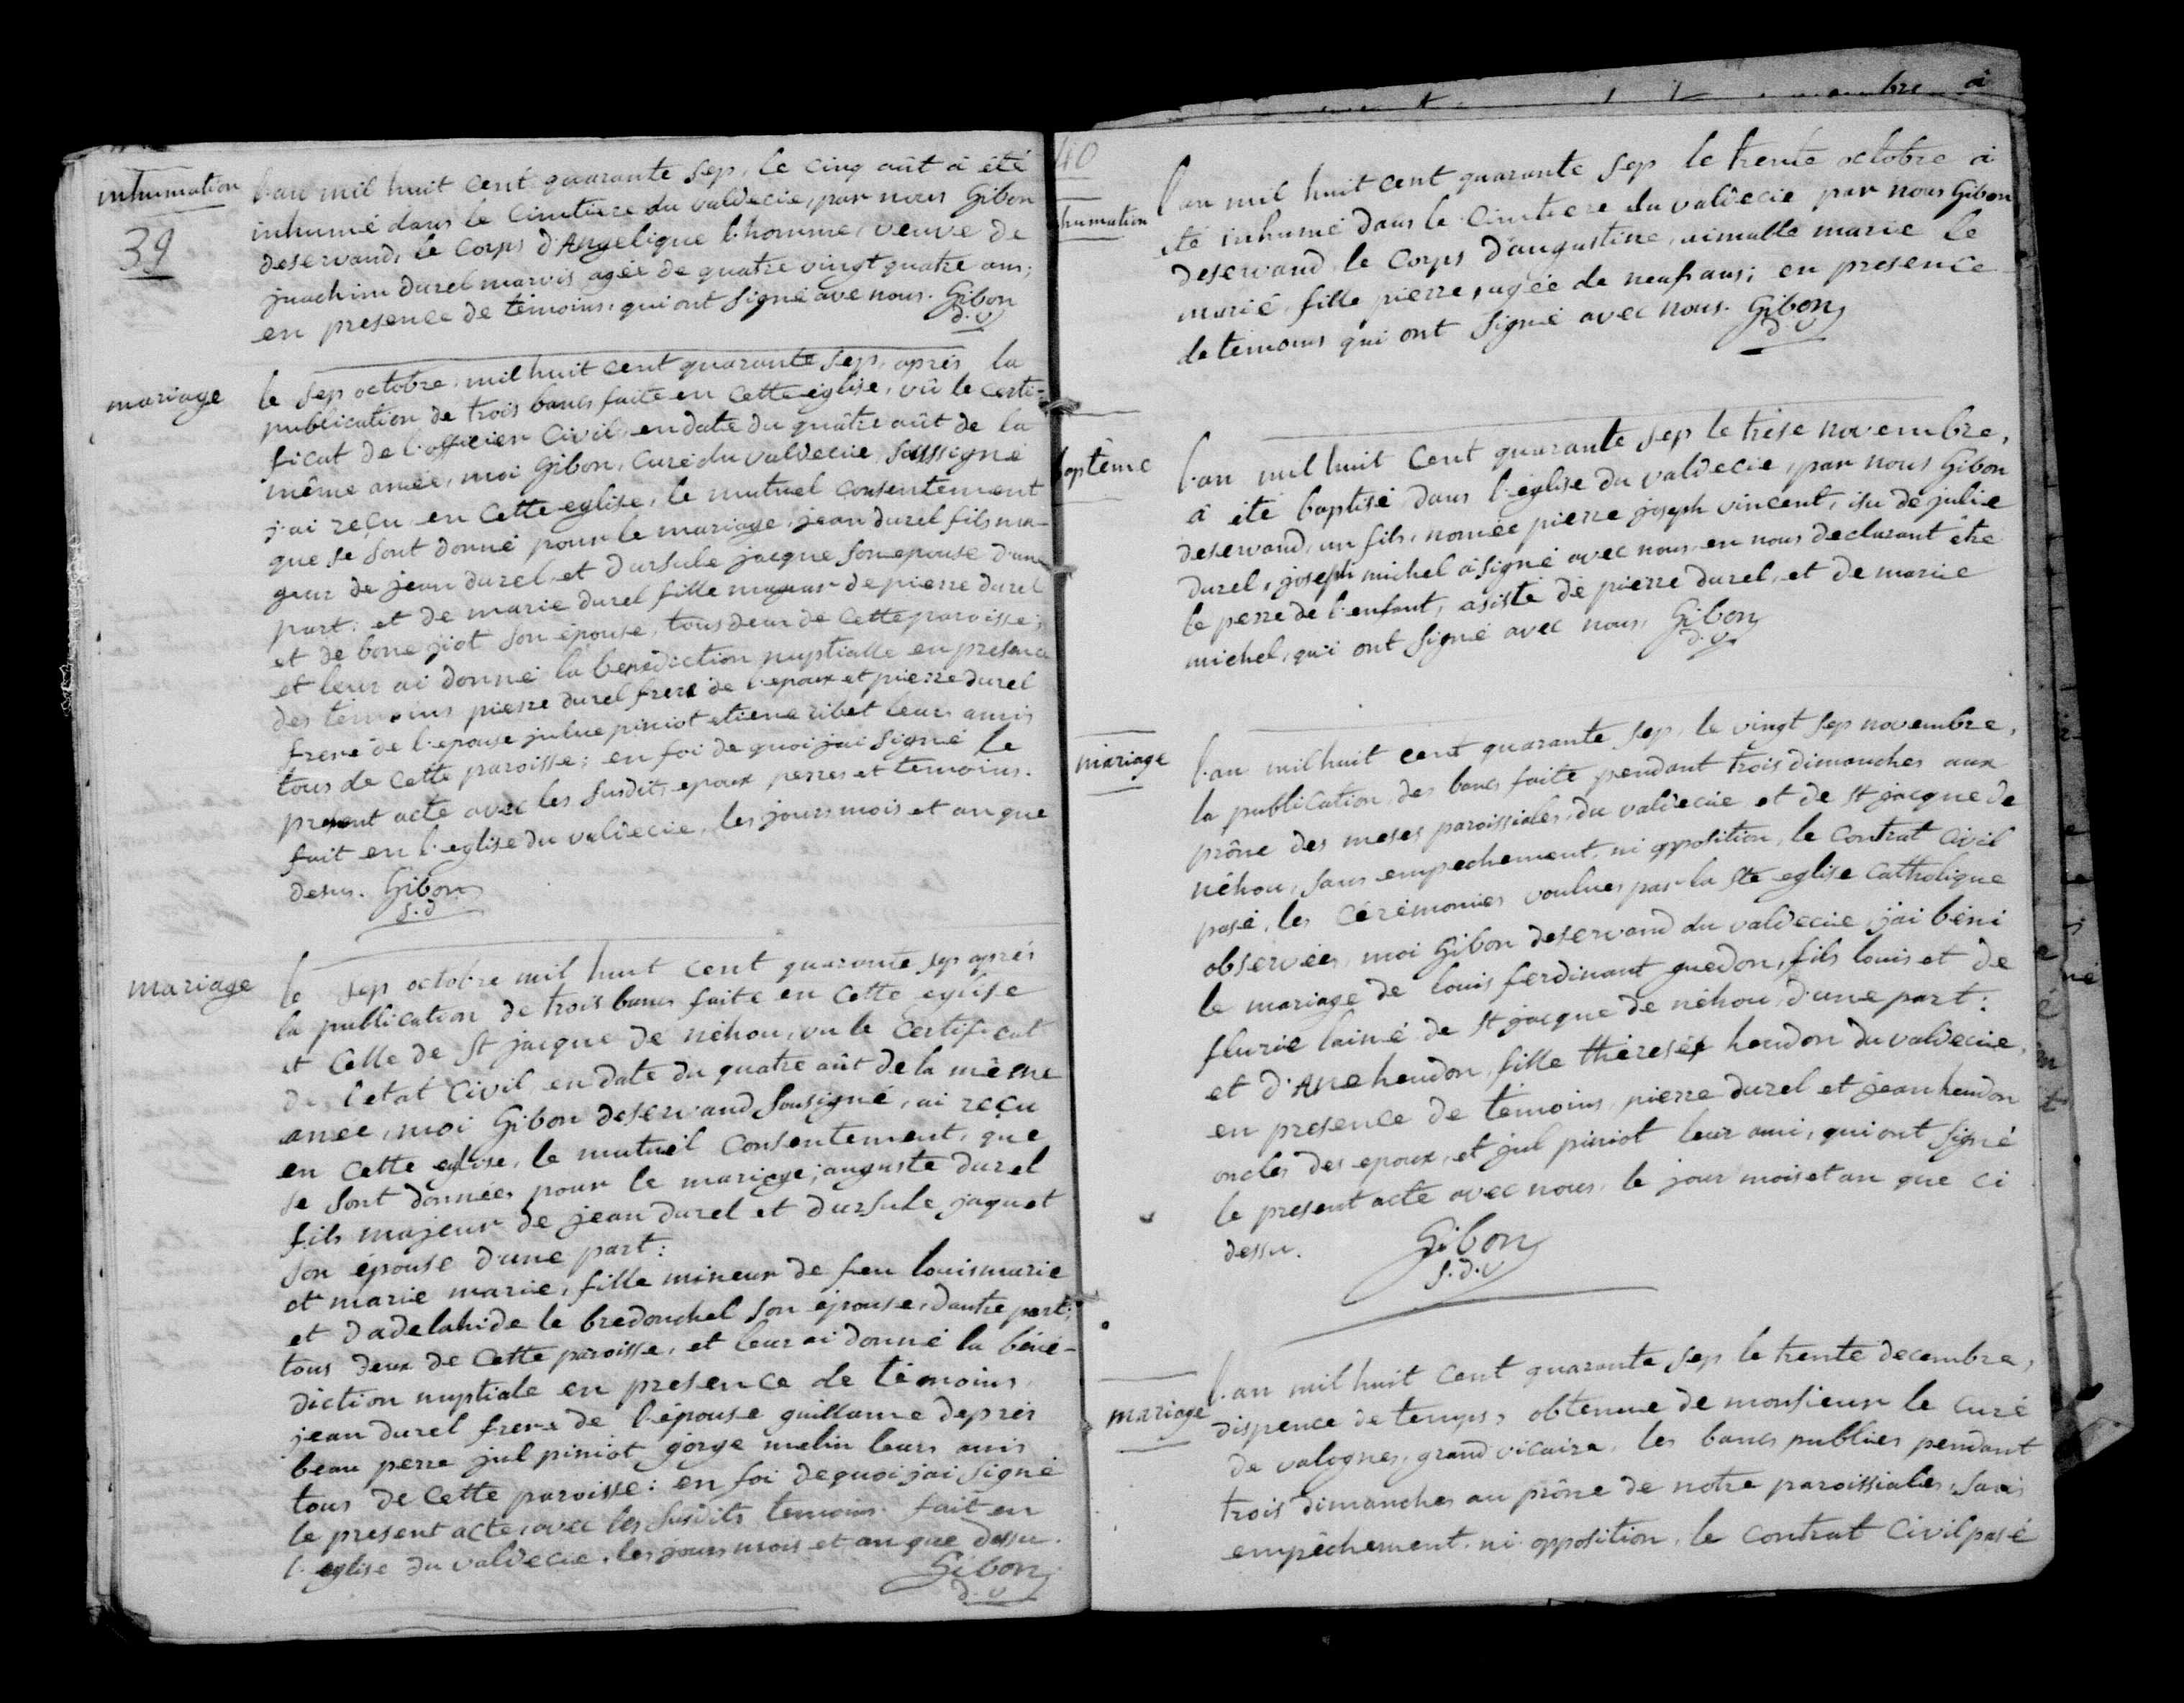 inhumation
39
l'an mil huit cent quarante sep, le cinq aût à été
inhumé dans le Cimtiere du valdecie, par nous Gibon
deservand, le Corps d'Angelique l'homme, veuve de
juachim durel marvis agée de quatre vingt quatre ans;
en presence de temoins, qui ont signé ave nous. Gibon
d.v
mariage
le sep octobre, mil huit cent quarante sep, aprés la
publication de trois bancs faite en cette eglise, vû le certi-
ficat de l'officier Civil, en date du quâtre aût de la
même anée, moi Gibon, Curé du valdecie soussigné
j'ai reçu en cette eglise, le mutuel consentement
que se sont donné pour le mariage, jean durel fils ma-
jeur de jean durel et dursule jacque son epouse d'une
part: et de marie durel fille majeur de pierre durel
et de bone jiot son épouse, tous deux de cette paroisse;
et leur ai donné la benediction nuptialle en presence
des temoins pierre durel frere de l'epoux et pierre durel
frere de l'epouse julue piniot etiene ribet leurs amis
tous de cette paroisse; en foi de quoi j'ai signé le
present acte avec les susdits epoux perres et temoins.
fait en l'eglise du valdecie, les jours mois et an que
desus. Gibon
s.d
mariage
le sep octobre mil huit cent quarante sep aprés
la publication de trois bancs faite en cette eglise
et celle de st jacque de néhou, vu le certificat
de l'etat Civil en date du quatre aût de la même
anee, moi Gibon deservand sousigné, ai reçu
en cette eglise, le mutuel consentement, que
se sont donnés pour le mariage; auguste durel
fils majeur de jean durel et dursule jaquet
son épouse d'une part:
et marie marie, fille mineur de feu louis marie
et d'adelahide le bredonchel son épouse, d'autre part;
tous deux de cette paroisse, et leur ai donné la béné-
diction nuptiale en presence de témoins,
jean durel frere de l'épouse guillaume deprés
beau perre jul piniot gorge melin leurs amis
tous de cette paroisse: en foi de quoi j'ai signé
le present acte, avec les susdits temoins. fait en
l'eglise du valdecie, les jours mois et an que dessu.
Gibon
d.v
40
humation
l'an mil huit cent quarante sep le trente octobre à
été inhumé dans le Cimtiere du valdecie par nous Gibon
deservand le Corps d'augustine, aimable marie le
marié, fille pierre, agée de neuf ans; en presence
de temoins qui ont signé avec nous. Gibon
d.v
baptême
l'an mil huit cent quarante sep le trese novembre,
à été baptisé dans l'eglise du valdecie, par nous Gibon
deservand, un fils, nomée pierre joseph vincent, isu de julie
durel, joseph michel à signé avec nous en nous declarant être
le perre de l'enfant, asisté de pierre durel, et de marie
michel, qui ont signé avec nous, Gibon
d.v
mariage
l'an mil huit cent quarante sep, le vingt sep novembre,
la publication des bancs faite pendant trois dimanches aux
prône des meses paroissiales, du valdecie et de st jacque de
néhou, sans empechement, ni opposition, le contrat civil
pasé, les cérémonies voulues par la ste eglise catholique
observées, moi Gibon deservand du valdecie, j'ai béni
le mariage de louis ferdinant guedon, fils louis et de
flurie lainé de st jacque de néhou, d'une part:
et d'Ane heudon, fille thérese heudon du valdecie,
en presence de témoins, pierre durel et jean heudon
oncles des epoux, et jul piniot leur ami, qui ont signé
le present acte avec nous, le jour mois et an que ci
dessu. Gibon
s.d.v
mariage
l'an mil huit cent quarante sep le trente decembre,
dispence de temps, obtenue de monsieur le curé
de valognes, grand vicaire, les bancs publies pendant
trois dimanches au prône de notre paroissiales, sans
empêchement, ni opposition, le contrat civil pasé